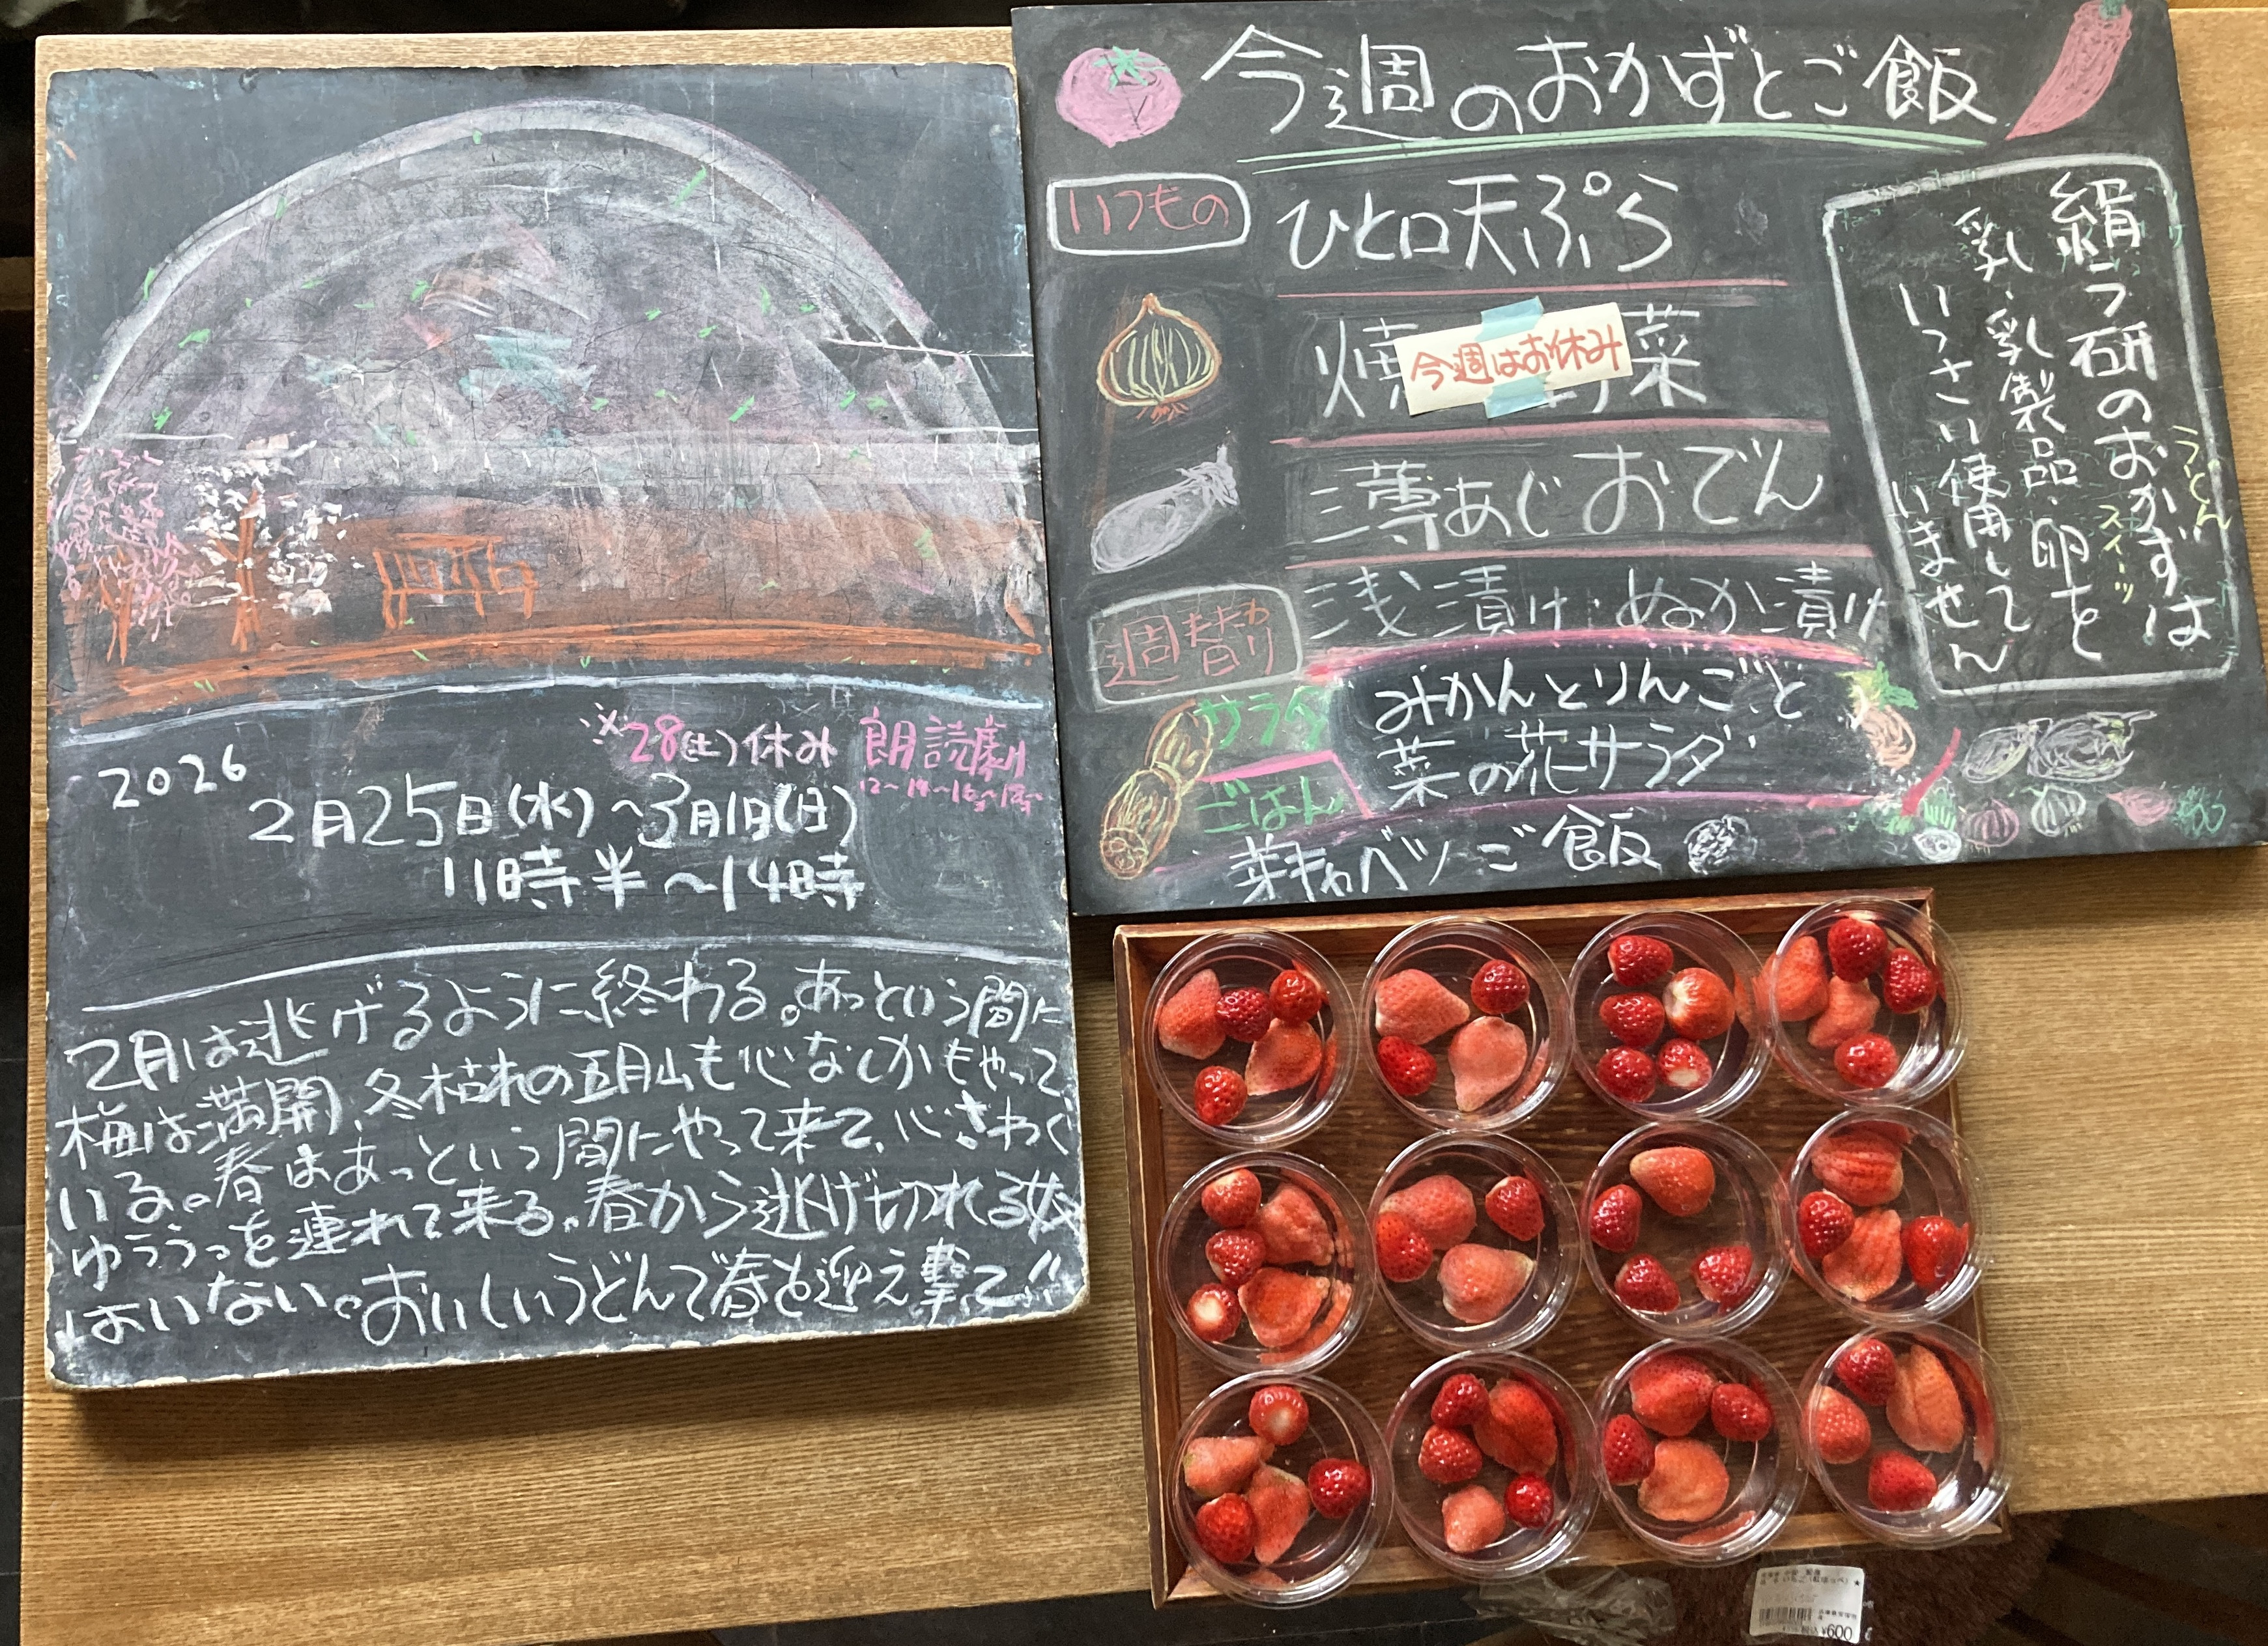 2026
※28(土)休み 朗読劇
12〜14〜16〜18〜
2月25日(水)〜3月1日(日)
11時半〜14時
2月は逃げるように終わる。あっという間に
梅は満開、冬枯れの五月山も心なしかもやって
いる。春はあっという間にやって来て、心さわぐ
ゆううつを連れて来る。春から逃げ切れる奴
はいない。おいしいうどんで春を迎え撃て!!
今週のおかずとご飯
いつもの
ひと口天ぷら
焼 菜
今週はお休み
薄あじおでん
浅漬け・ぬか漬け
週替わり
サラダ
みかんとりんごと
菜の花サラダ
ごはん
芽キャベツご飯
絹ラ研のおかずは
乳・乳製品・卵を
いっさい使用して
いません
うどん
スイーツ
¥600